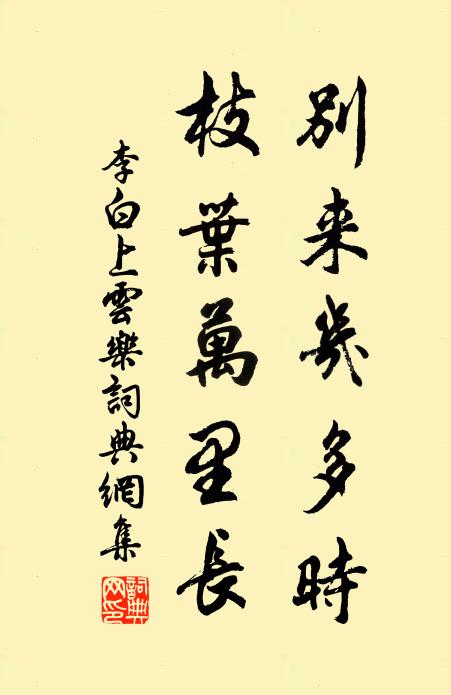 別来幾多時
枝葉萬里長
李白上雲樂詞典網集
詞典
网印